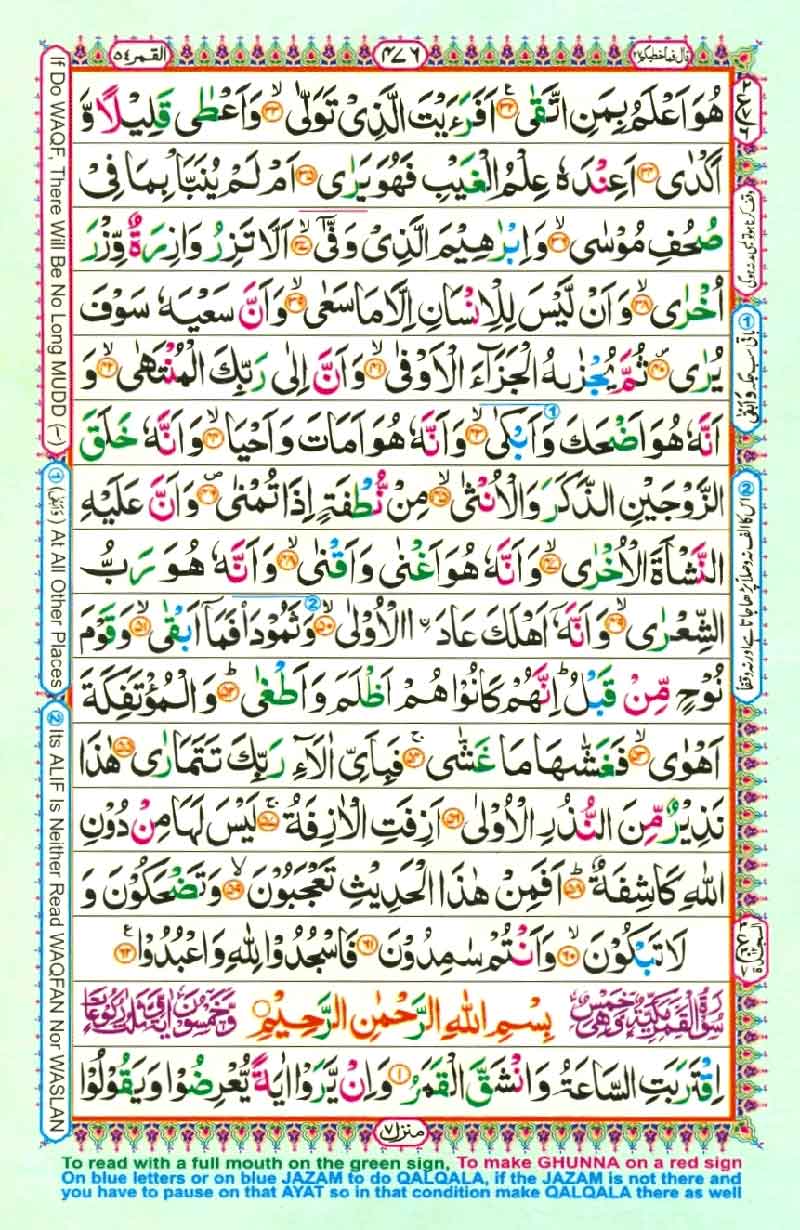 قال فما خطبكم ٢٧
٤٧٦
القمر ٥٤
هُوَ اَعْلَمُ بِمَنِ اتَّقٰى ﴿٣٢﴾ اَفَرَءَيْتَ الَّذِىْ تَوَلّٰى ﴿٣٣﴾ وَاَعْطٰى قَلِيْلًا وَّ
اَكْدٰى ﴿٣٤﴾ اَعِنْدَهٗ عِلْمُ الْغَيْبِ فَهُوَ يَرٰى ﴿٣٥﴾ اَمْ لَمْ يُنَبَّاْ بِمَا فِىْ
صُحُفِ مُوْسٰى ﴿٣٦﴾ وَاِبْرٰهِيْمَ الَّذِىْ وَفّٰٓى ﴿٣٧﴾ اَلَّا تَزِرُ وَازِرَةٌ وِّزْرَ
اُخْرٰى ﴿٣٨﴾ وَاَنْ لَّيْسَ لِلْاِنْسَانِ اِلَّا مَا سَعٰى ﴿٣٩﴾ وَاَنَّ سَعْيَهٗ سَوْفَ
يُرٰى ﴿٤٠﴾ ثُمَّ يُجْزٰىهُ الْجَزَآءَ الْاَوْفٰى ﴿٤١﴾ وَاَنَّ اِلٰى رَبِّكَ الْمُنْتَهٰى ﴿٤٢﴾ وَ
اَنَّهٗ هُوَ اَضْحَكَ وَاَبْكٰى ﴿٤٣﴾ وَاَنَّهٗ هُوَ اَمَاتَ وَاَحْيَا ﴿٤٤﴾ وَاَنَّهٗ خَلَقَ
الزَّوْجَيْنِ الذَّكَرَ وَالْاُنْثٰى ﴿٤٥﴾ مِنْ نُّطْفَةٍ اِذَا تُمْنٰى ﴿٤٦﴾ وَاَنَّ عَلَيْهِ
النَّشْاَةَ الْاُخْرٰى ﴿٤٧﴾ وَاَنَّهٗ هُوَ اَغْنٰى وَاَقْنٰى ﴿٤٨﴾ وَاَنَّهٗ هُوَ رَبُّ
الشِّعْرٰى ﴿٤٩﴾ وَاَنَّهٗٓ اَهْلَكَ عَادَ ۨا الْاُوْلٰى ﴿٥٠﴾ وَثَمُوْدَا۟ فَمَآ اَبْقٰى ﴿٥١﴾ وَقَوْمَ
نُوْحٍ مِّنْ قَبْلُ ؕ اِنَّهُمْ كَانُوْا هُمْ اَظْلَمَ وَاَطْغٰى ﴿٥٢﴾ وَالْمُؤْتَفِكَةَ
اَهْوٰى ﴿٥٣﴾ فَغَشّٰىهَا مَا غَشّٰى ﴿٥٤﴾ فَبِاَىِّ اٰلَآءِ رَبِّكَ تَتَمَارٰى ﴿٥٥﴾ هٰذَا
نَذِيْرٌ مِّنَ النُّذُرِ الْاُوْلٰى ﴿٥٦﴾ اَزِفَتِ الْاٰزِفَةُ ﴿٥٧﴾ لَيْسَ لَهَا مِنْ دُوْنِ
اللّٰهِ كَاشِفَةٌ ﴿٥٨﴾ اَفَمِنْ هٰذَا الْحَدِيْثِ تَعْجَبُوْنَ ﴿٥٩﴾ وَتَضْحَكُوْنَ وَ
لَا تَبْكُوْنَ ﴿٦٠﴾ وَاَنْتُمْ سٰمِدُوْنَ ﴿٦١﴾ فَاسْجُدُوْا لِلّٰهِ وَاعْبُدُوْا ﴿٦٢﴾
بِسْمِ اللّٰهِ الرَّحْمٰنِ الرَّحِيْمِ
اِقْتَرَبَتِ السَّاعَةُ وَانْشَقَّ الْقَمَرُ ﴿١﴾ وَاِنْ يَّرَوْا اٰيَةً يُّعْرِضُوْا وَيَقُوْلُوْا
منزل ٧
If Do WAQF, There Will Be No Long MUDD
① At All Other Places
② Its ALIF Is Neither Read WAQFAN Nor WASLAN
To read with a full mouth on the green sign, To make GHUNNA on a red sign
On blue letters or on blue JAZAM to do QALQALA, if the JAZAM is not there and
you have to pause on that AYAT so in that condition make QALQALA there as well